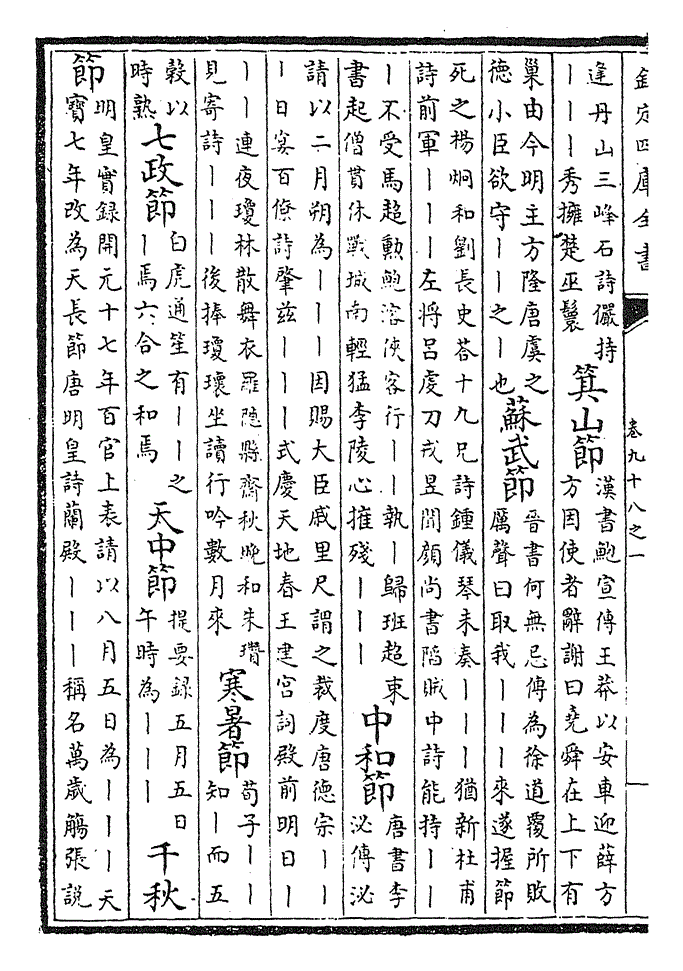 欽定四庫全書
卷九十八之一
逢丹山三峰石詩儼持
｜｜｜秀擁楚巫鬟
箕山節
漢書鮑宣傳王莽以安車迎薛方
方因使者辭謝曰堯舜在上下有
巢由今明主方隆唐虞之
德小臣欲守｜｜之｜也
蘇武節
晉書何無忌傳為徐道覆所敗
厲聲曰取我｜｜｜來遂握節
死之楊炯和劉長史荅十九兄詩鍾儀琴未奏｜｜｜猶新杜甫
詩前軍｜｜｜左將呂虔刀戎昱聞顔尚書陷賊中詩能持｜｜
｜不受馬超勲鮑溶俠客行｜｜執｜歸班超束
書起僧貫休戰城南輕猛李陵心摧殘｜｜｜
中和節
唐書李
泌傳泌
請以二月朔為｜｜｜因賜大臣戚里尺謂之裁度唐德宗｜｜
｜日宴百僚詩肇兹｜｜｜式慶天地春王建宫詞殿前明日｜
｜｜連夜瓊林散舞衣羅隱縣齋秋晚和朱瓚
見寄詩｜｜｜後捧瓊瓌坐讀行吟數月來
寒暑節
荀子｜｜
知｜而五
穀以
時熟
七政節
白虎通笙有｜｜之
｜焉六合之和焉
天中節
提要録五月五日
午時為｜｜｜
千秋
節
明皇實録開元十七年百官上表請以八月五日為｜｜｜天
寶七年改為天長節唐明皇詩蘭殿｜｜｜稱名萬歲觴張説